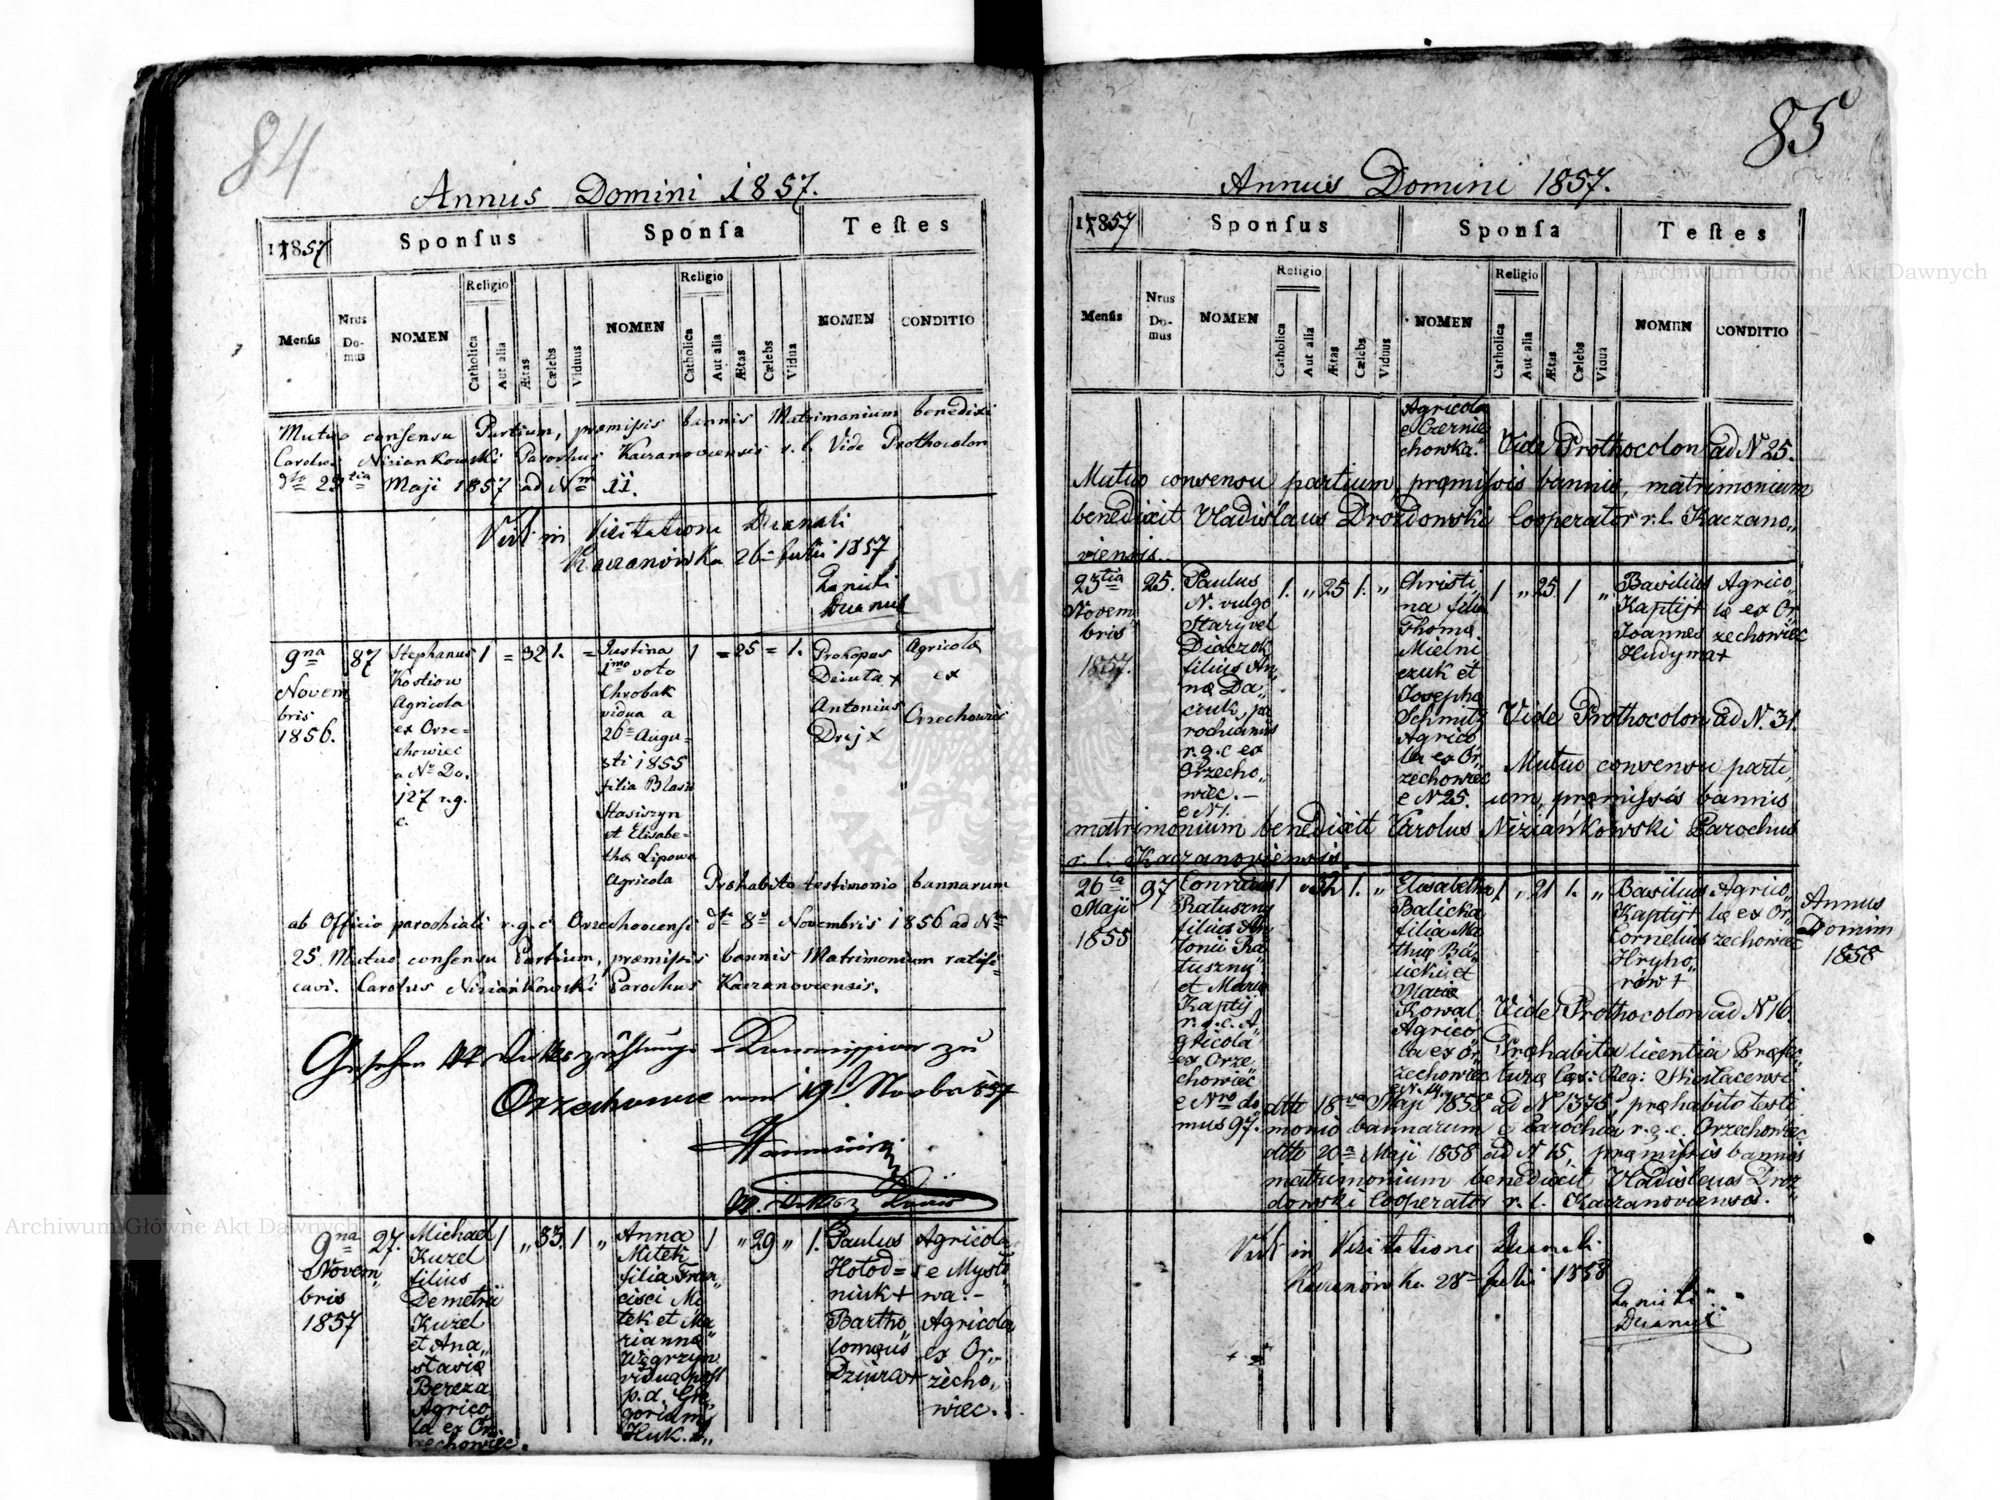 84
Annus Domini 1857.
17857
Sponſus
Sponſa
Teſtes
Menſis
Nrus Domus
NOMEN
Religio
Catholica
Aut alia
Ætas
Cælebs
Viduus
NOMEN
Religio
Catholica
Aut alia
Ætas
Cælebs
Vidua
NOMEN
CONDITIO
Mutuo consensu Partium, præmissis bannis Matrimonium benedixi
Carolus Niziankowski Parochus Kaczanoviensis r. l. Vide Prothocolon
Maji 1857 ad Nm 11.
Vidi in Visitatione Decanali
Kaczanówka 26 Julii 1857
Decanus
9na
Novem
bris
1856.
87
Stephanus
Kostiow
Agricola
ex Orze-
chowiec
a Nr Do.
127 r.g.
c.
1 = 32 1. =
Justina
1mo voto
Chrobak
vidua a
26 Augu-
sti 1855
filia Blasii
Stasiszyn
et Elisabe-
tha Lipowa
Agricola
1 = 25 = 1.
Prokopus
Deiuta +
Antonius
Drej x
Agricolæ
ex
Orzechowiec
Prohabito testimonio bannarum
ab Officio parochiali r.g.c. Orzechoviensi dto 8a Novembris 1856 ad Nrm
25. Mutuo consensu Partium, præmissis bannis Matrimonium ratifi-
cavi. Carolus Niziankowski Parochus Kaczanoviensis.
Gesehen
Kommission zu
Orzechowiec am 19t
9na
Novem
bris
1857
27.
Michael
Kuzel
filius
Demetrii
Kuzel
et Ana„
stasiæ
Bereza
Agrico
la ex Or„
zechowiec.
1 „ 33. 1 „
Anna
Mitek
filia Fran„
cisci Mi„
tek et Ma
riannæ
Węgrzyn
vidua post
p.d. Gre
gorium
Huk.
1 „ 29 „ 1.
Paulus
Hołod=
niuk +
Bartho
lomæus
Dziura +
Agricola
e Myszko
wa. -
Agricola
ex Or„
zecho„
wiec.
85
Annus Domini 1857.
17857
Sponſus
Sponſa
Teſtes
Menſis
Nrus Domus
NOMEN
Religio
Catholica
Aut alia
Ætas
Cælebs
Viduus
NOMEN
Religio
Catholica
Aut alia
Ætas
Cælebs
Vidua
NOMEN
CONDITIO
Agricola
e Czernie
chowka.
Vide Prothocolon ad N 25.
Mutuo consensu partium, præmissis bannis, matrimonium
benedixit Vladislaus Drozdowski Cooperator r. l. Kaczano„
viensis.
23tia
Novem
bris
1857.
25.
Paulus
N. vulgo
Staryvel
Diaczok
filius An„
næ Da„
ciuk, pa
rochianus
r.g.c. ex
Orzecho„
wiec. -
e N 1.
1. „ 25 1. „
Christi
na filia
Thomæ
Mielni
czuk et
Josepha
Schmitz
Agrico
la ex Or„
zechowiec
e N 25.
1 „ 25 1 „
Basilius
Kaptij +
Joannes
Hudyma +
Agrico„
læ ex Or„
zechowiec
Vide Prothocolon ad N. 31.
Mutuo consensu parti„
um, præmissis bannis
matrimonium benedixit Carolus Niziańkowski Parochus
r. l. Kaczanoviensis.
26ta
Maji
1855
97
Conradus
Ratuszny
filius An
tonii Ra
tuszny
et Maria
Kaptij
r.g.c. A„
gricola
ex Orze
chowiec
e Nro do
mus 97.
1 „ 32 1. „
Elisabetha
Balicka
filia Ma
thiæ Ba„
licki et
Maria
Kowal
Agrico
la ex Or„
zechowiec
1 „ 21 1. „
Basilius
Kaptij +
Cornelius
Hryho„
rów +
Agrico„
læ ex Or„
zechowiec
Annus
Domini
1858
Vide Prothocolon ad N 16.
Præhabita licentia Præfec„
turæ Cæs: Reg:
dtto 18va Maji 1858 ad N 1373, præhabito testi
monio bannarum e Parochia r.g.c. Orzechowiec
dtto 20a Maji 1858 ad N 15, præmissis bannis
matrimonium benedixit Vladislaus Droz„
dowski Cooperator r. l. Kaczanoviensis.
Vidi in Visitatione Decanali
Kaczanówka 28 Julii 1858
Decanus
Archiwum Główne Akt Dawnych
Archiwum Główne Akt Dawnych